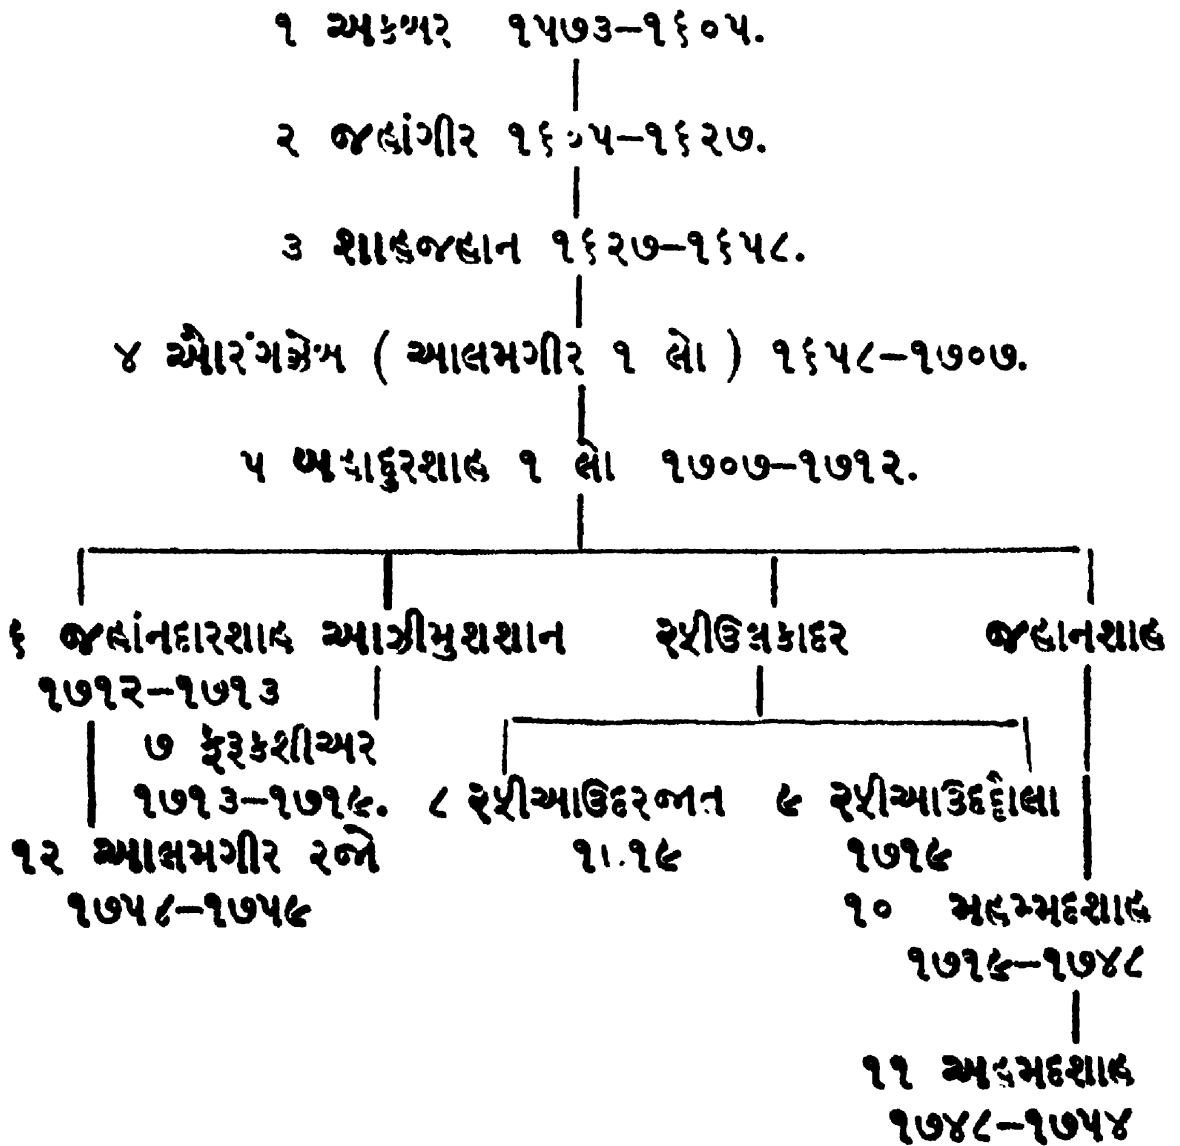 ૧ અકબર ૧૫૭૩–૧૬૦૫.
૨ જહાંગીર ૧૬૦૫–૧૬૨૭.
૩ શાહજહાન ૧૬૨૭–૧૬૫૮.
૪ ઔરંગઝેબ ( આલમગીર ૧ લો ) ૧૬૫૮–૧૭૦૭.
૫ બહાદુરશાહ ૧ લો ૧૭૦૭–૧૭૧૨.
૬ જહાંનદારશાહ આઝીમુશશાન રફીઉલકાદર જહાનશાહ
૧૭૧૨–૧૭૧૩
૭ ફરૂકશીઅર
૧૭૧૩–૧૭૧૯. ૮ રફીઆઉદરજાત ૯ રફીઆઉદદ્દૌલા
૧૨ આલમગીર રજો ૧૭૧૯ ૧૭૧૯
૧૭૫૪–૧૭૫૯ ૧૦ મહમ્મદશાહ
૧૭૧૯–૧૭૪૮
૧૧ અહમદશાહ
૧૭૪૮–૧૭૫૪